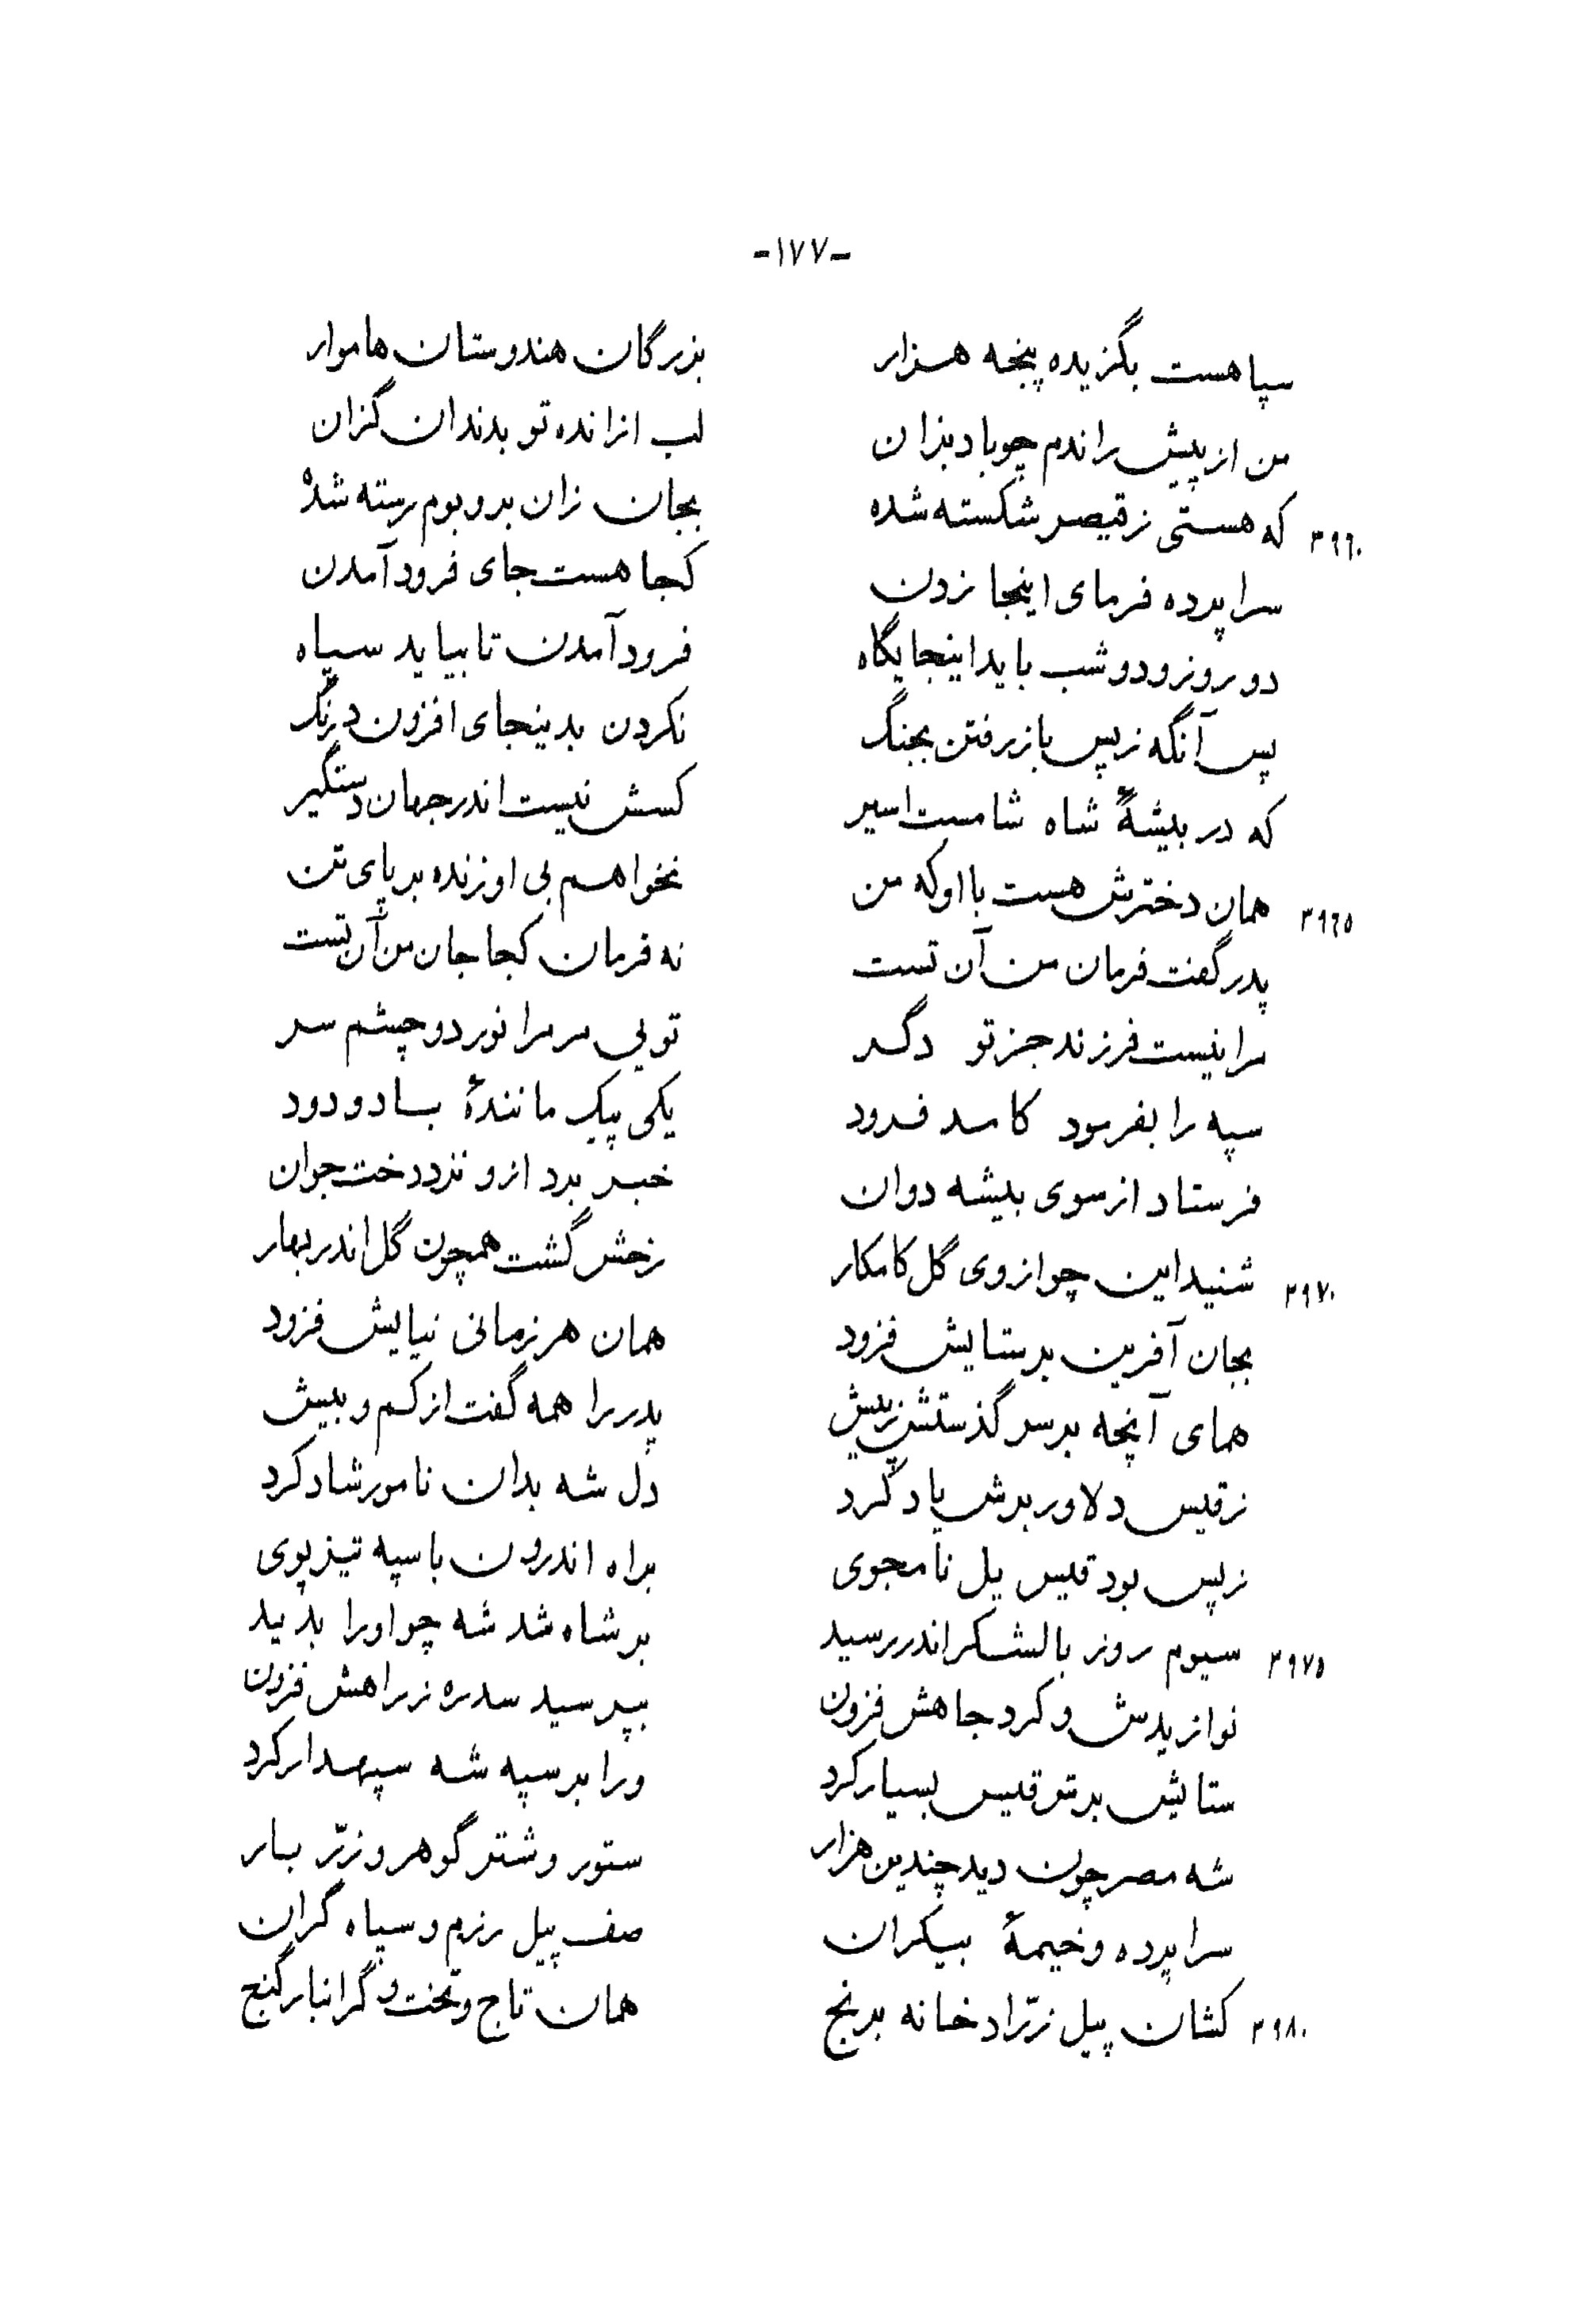 -١٧٧-
سپاهست بگزیده پنجه هزار    بزرگان هندوستان هاموار
من از پیش راندم چو باد بزان    لب از انده تو بدندان گزان
٣٩٦٠ که هستی ز قیصر شکسته شده    بجان زان بر و بوم رسته شده
سراپرده فرمای اینجا زدن    کجا هست جای فرود آمدن
دو روز و دو شب باید اینجایگاه    فرود آمدن تا بیاید سپاه
پس آنگه ز پس باز رفتن بجنگ    نکردن بدینجای افزون درنگ
که در بیشهٔ شاه شامست اسیر    کسش نیست اندر جهان دستگیر
٣٩٦٥ همان دخترش هست با او که من    نخواهم بی او زنده بر پای تن
پدر گفت فرمان من آن تست    نه فرمان کجا جان من آن تست
مرا نیست فرزند جز تو دگر    تویی مر مرا نور دو چشم سر
سپه را بفرمود کامد فرود    یکی پیک مانندهٔ باد و دود
فرستاد از سوی بیشه دوان    خبر برد ازو نزد دخت جوان
٣٩٧٠ شنید این چو از وی گل کامکار    رخش گشت همچون گل اندر بهار
بجان آفرین بر ستایش فزود    همان هر زمانی نیایش فزود
همای آنچه بر سر گذستش ز پیش    پدر را همه گفت از کم و بیش
ز قیس دلاور برش یاد کرد    دل شه بدان نامور شاد کرد
ز پس بود قیس یل نامجوی    براه اندرون با سپه تیزپوی
٣٩٧٥ سیوم روز با لشکر اندر رسید    بر شاه شد شه چو او را بدید
نوازیدش و کرد جاهش فزون    بپرسید سدره ز راهش فزون
ستایش برتو قیس بسیار کرد    ورا بر سپه شه سپهدار کرد
شه مصر چون دید چندین هزار    ستور و شتر گوهر و زرّ بار
سراپرده و خیمهٔ بیکران    صف پیل رزم و سپاه گران
٣٩٨٠ کشان پیل زرّاد خانه برنج    همان تاج و تخت و گرانبار گنج